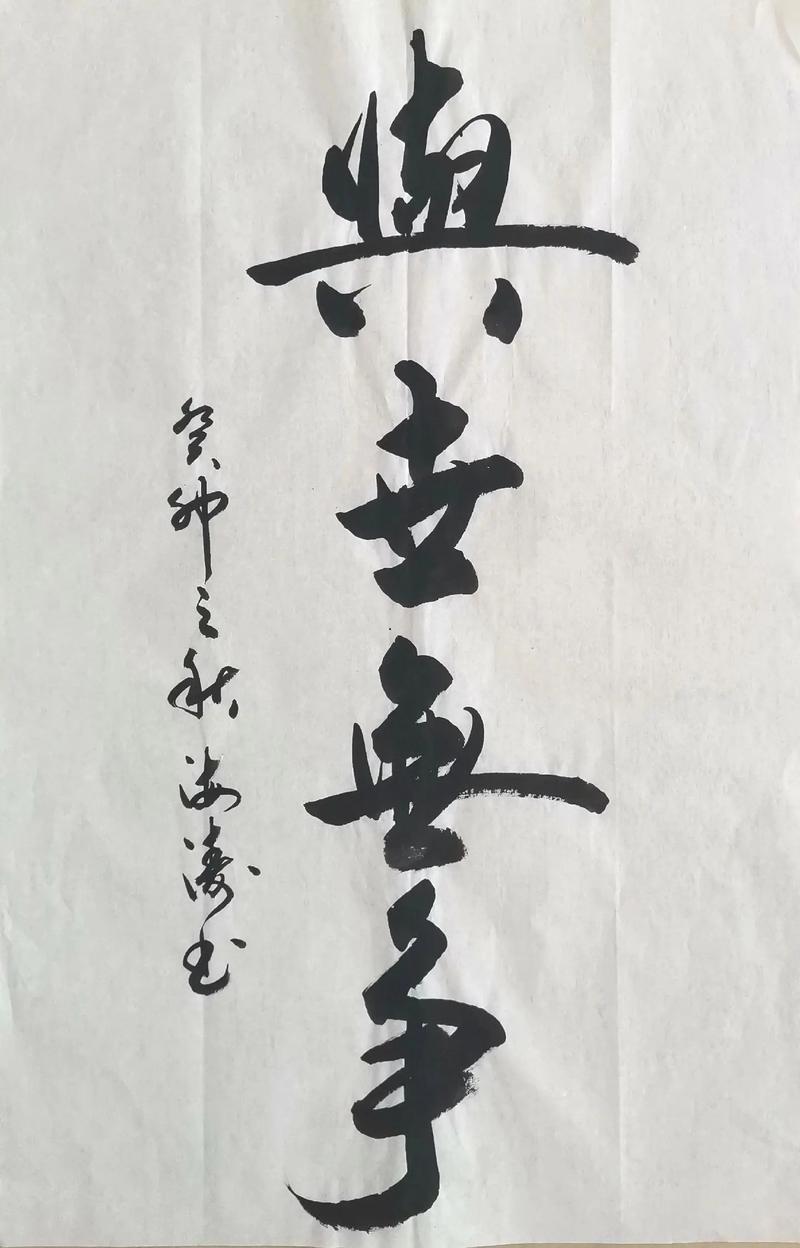 與世無爭
癸卯之秋海濤书